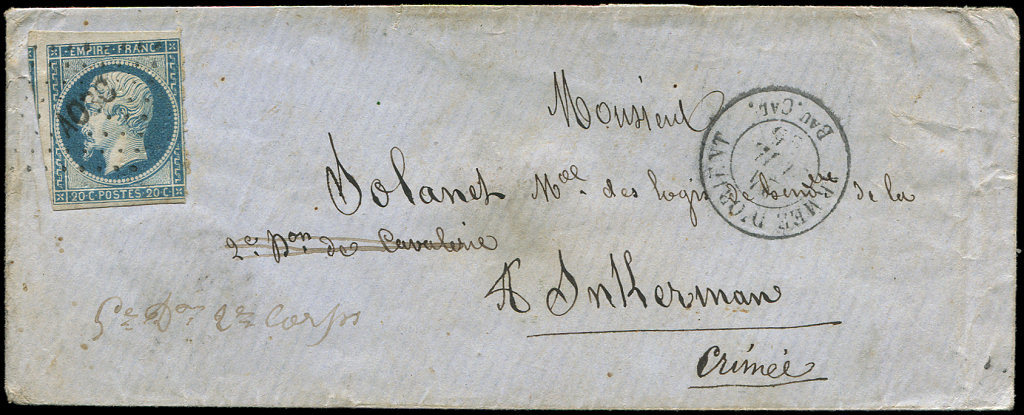 EMPIRE · FRANC
20·C·POSTES·20·C
ARMÉE D'ORIENT BAU. CAL.
Monsieur
Volanet Mal des logis de la
2e Don de Cavalerie
A Inkerman
5e Don 2e Corps
Crimée